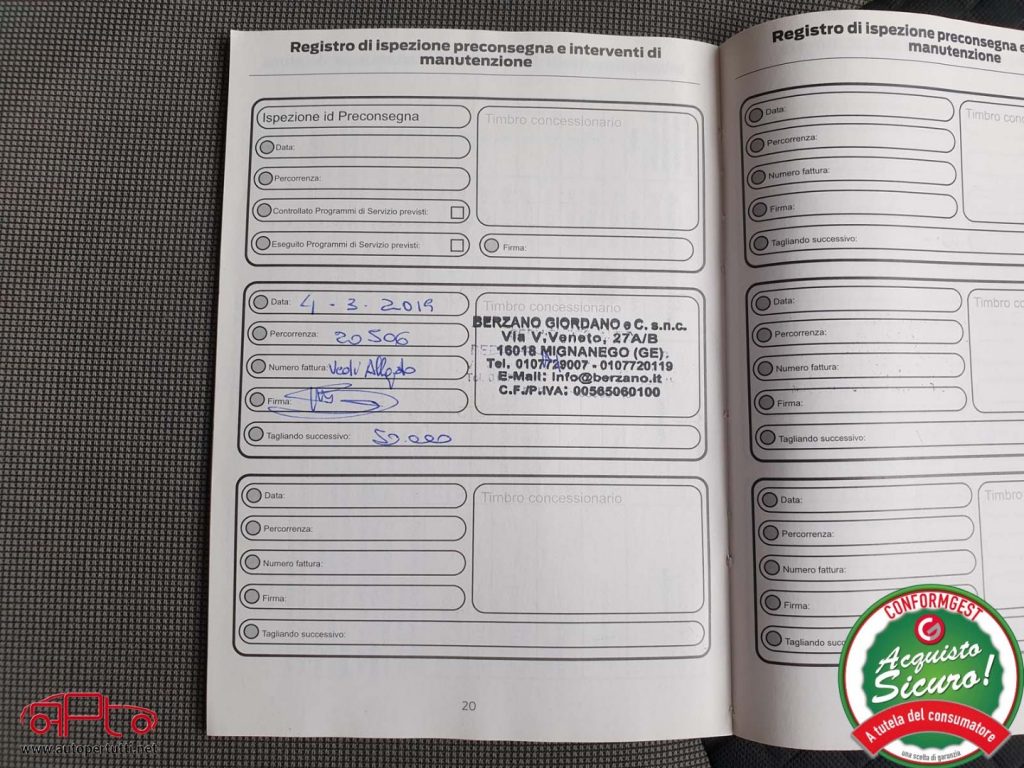 Registro di ispezione preconsegna e interventi di
manutenzione
Ispezione id Preconsegna
Timbro concessionario
Data:
Percorrenza:
Controllato Programmi di Servizio previsti:
Eseguito Programmi di Servizio previsti:
Firma:
Data: 4 - 3 - 2019
Timbro concessionario
Percorrenza: 20506
Numero fattura: Vedi Allegato
Firma:
Tagliando successivo: 50.000
BERZANO GIORDANO e C. s.n.c.
Via V.Veneto, 27A/B
16018 MIGNANEGO (GE)
Tel. 0107729007 - 0107720119
E-Mail: info@berzano.it
C.F./P.IVA: 00565060100
Data:
Timbro concessionario
Percorrenza:
Numero fattura:
Firma:
Tagliando successivo:
20
Registro di ispezione preconsegna e
manutenzione
Data:
Timbro con
Percorrenza:
Numero fattura:
Firma:
Tagliando successivo:
Data:
Timbro co
Percorrenza:
Numero fattura:
Firma:
Tagliando successivo:
Data:
Timbro
Percorrenza:
Numero fattura:
Firma:
Tagliando succ
CONFORMGEST
Acquisto
Sicuro!
A tutela del consumatore
una scelta di garanzia
apto
www.autopertutti.net